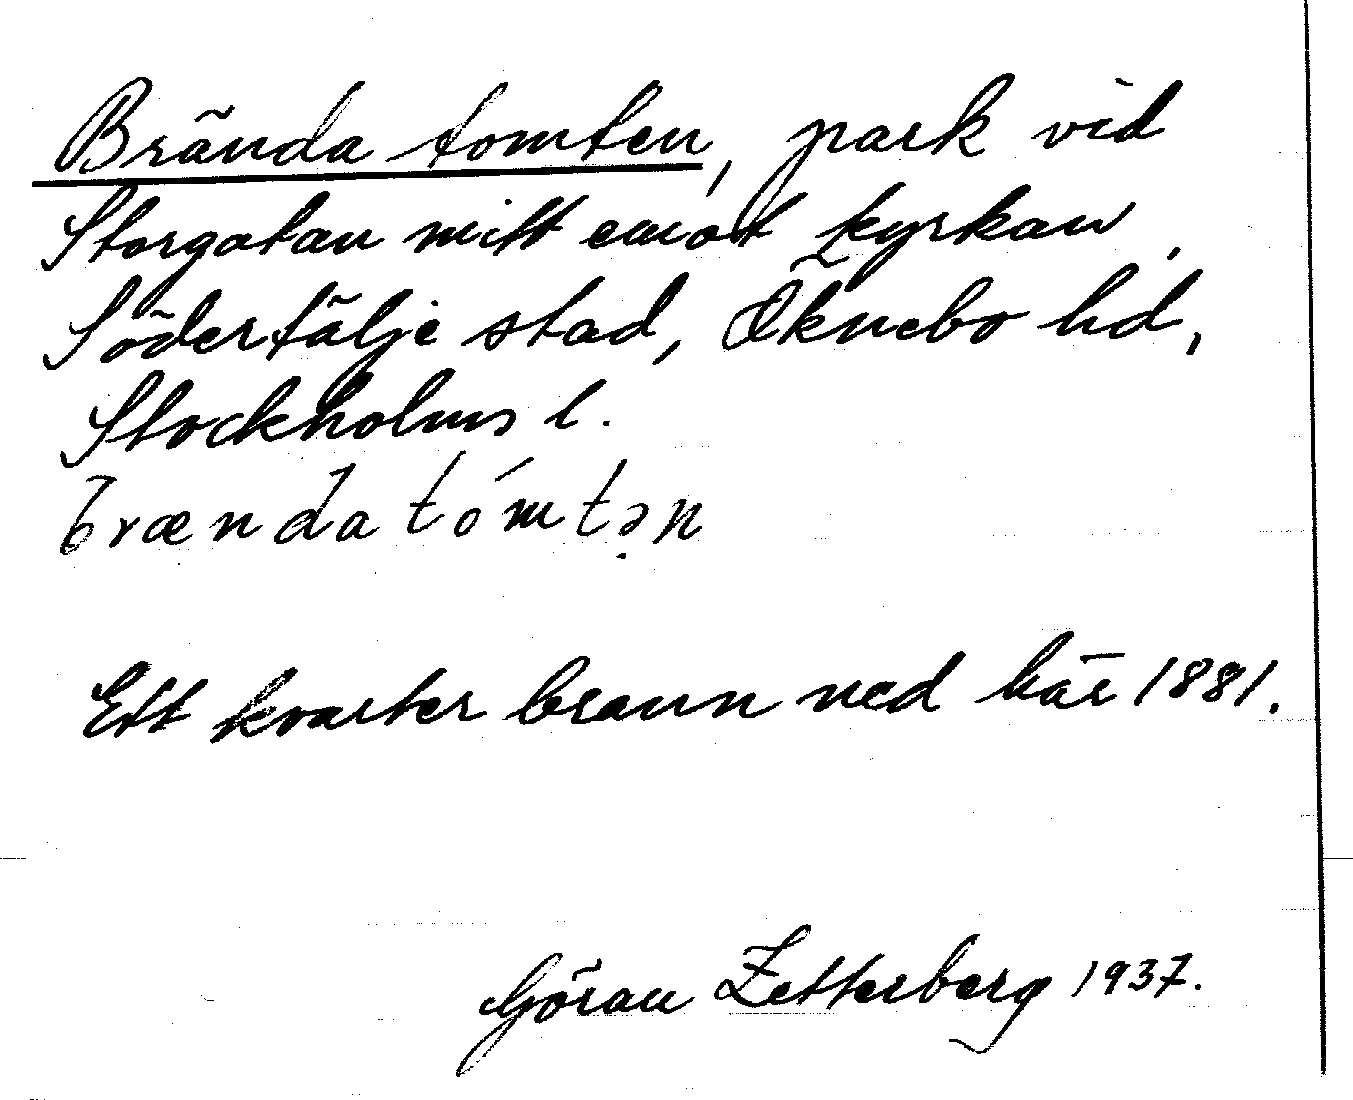 Brända tomten, park vid
Storgatan mitt emot kyrkan,
Södertälje stad, Öknebo hd,
Stockholms l.
brænda tómtən
Ett kvarter brann ned här 1881.
Göran Zetterberg 1937.